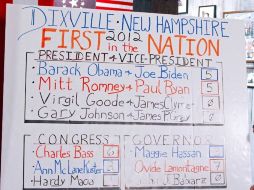 DIXVILLE • NEW HAMPSHIRE
FIRST 2012 in the NATION
PRESIDENT + VICE-PRESIDENT
Barack Obama + Joe Biden 5
Mitt Romney + Paul Ryan 5
Virgil Goode + James 0
Gary Johnson + James 0
CONGRESS
Charles Bass
Ann McLane Kuster
Hardy
GOVERNOR
Maggie Hassan
Ovide Lamontagne 7
J. Babiarz 0